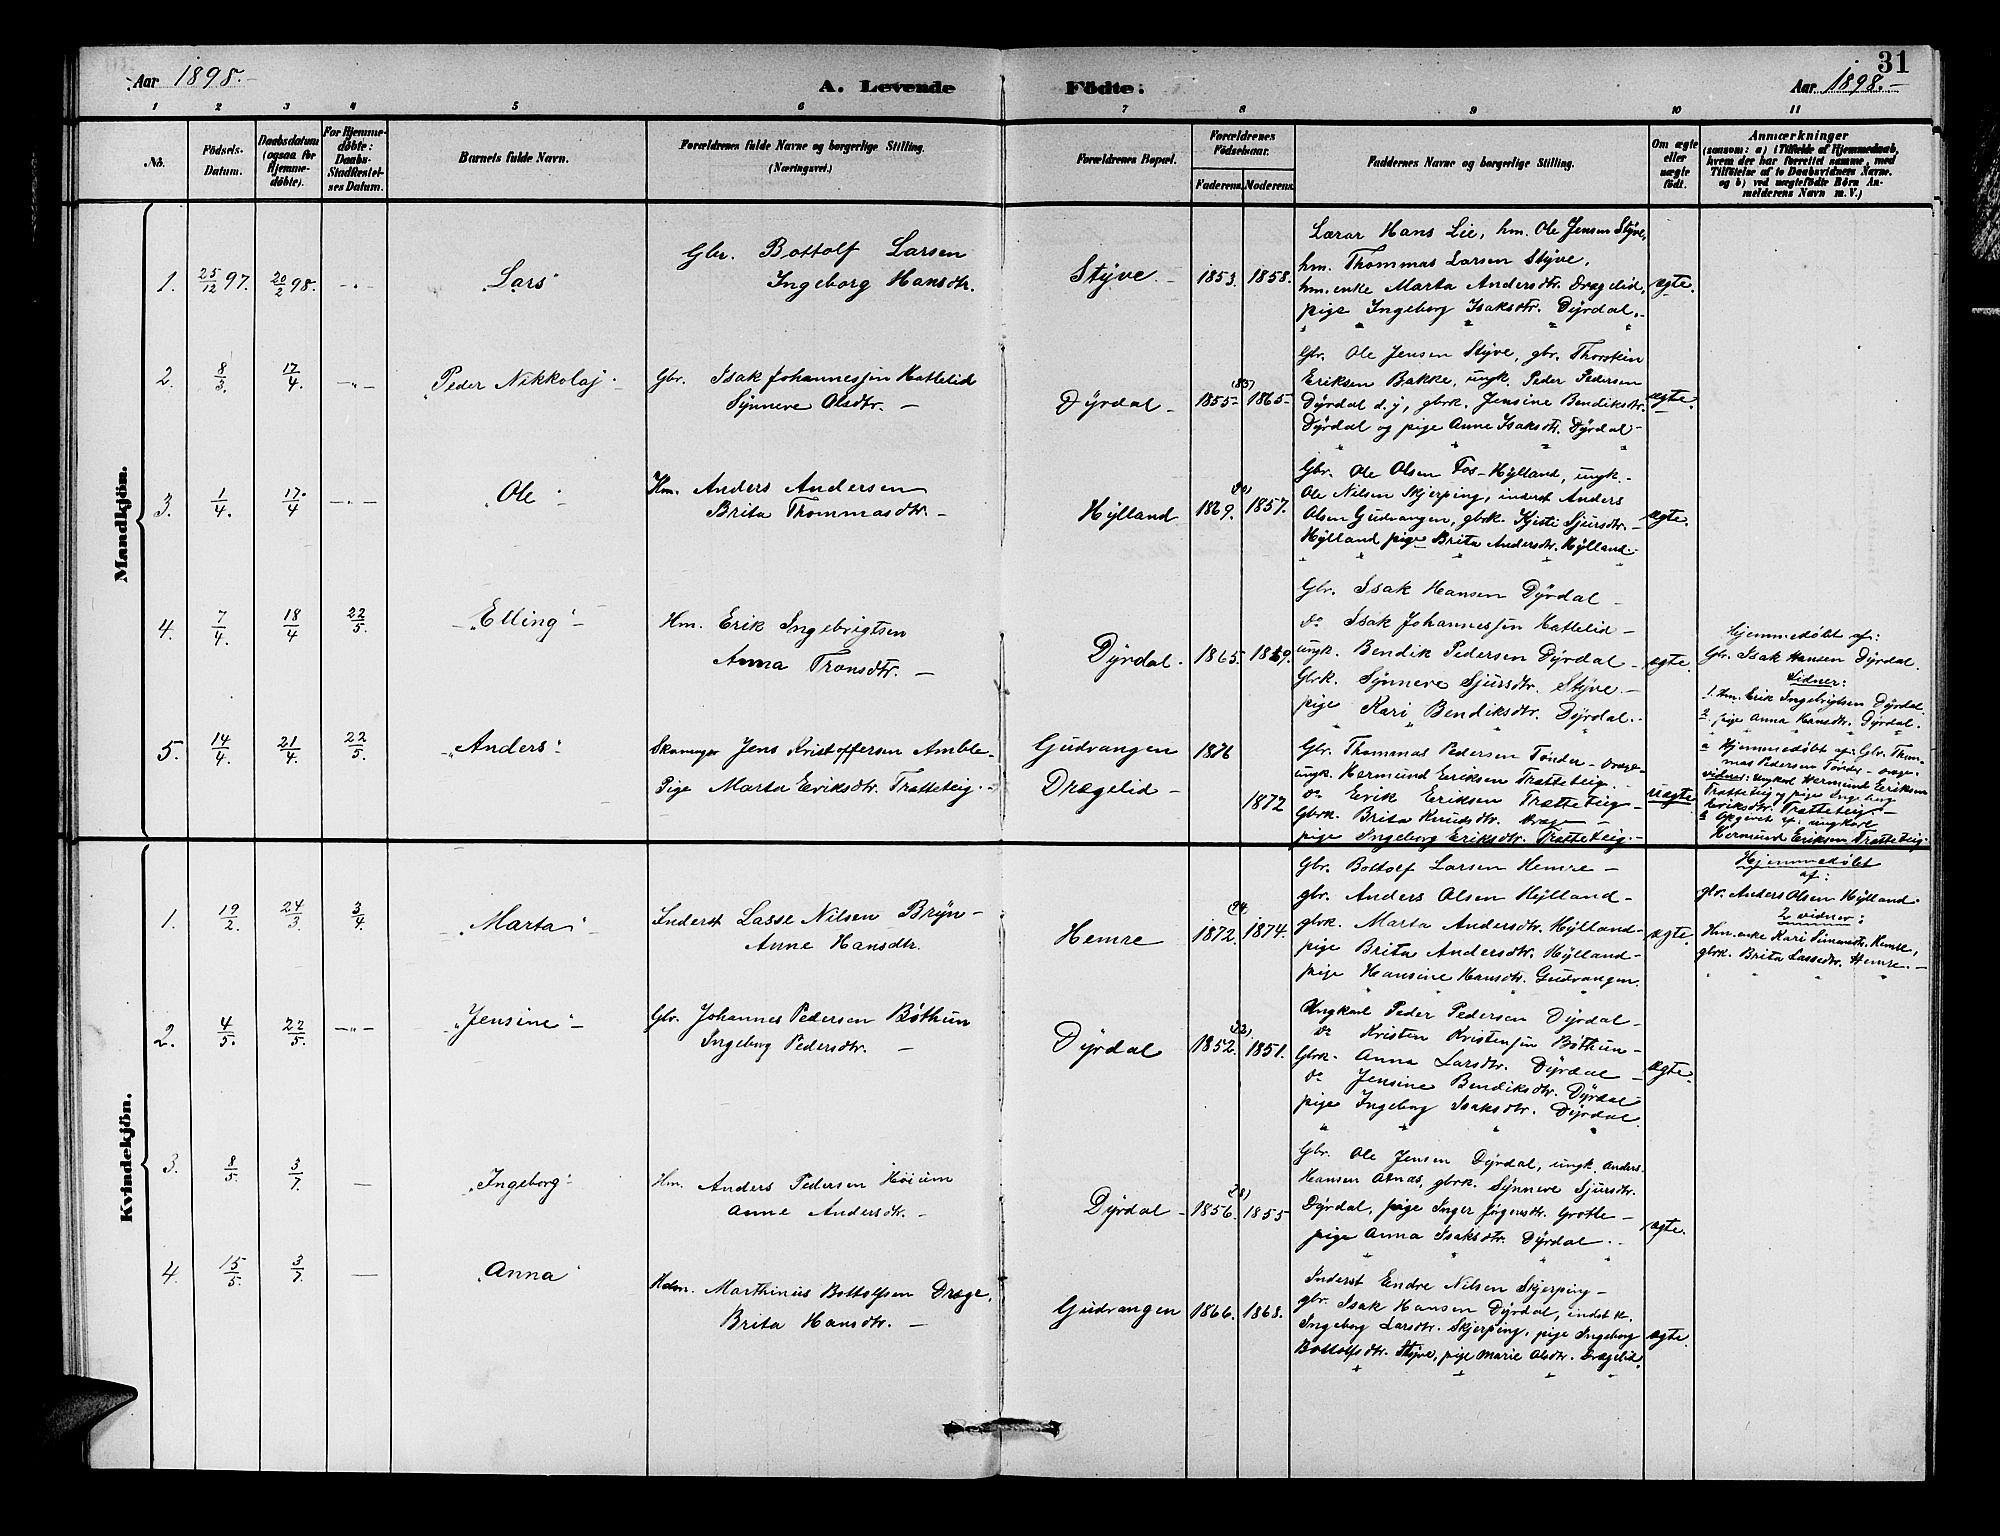 31
Aar 1898.-
A. Levende
Födte:
Aar 1898.-
1 2 3 4 5 6 7 8 9 10 11
No.
Födsels-Datum.
Daabsdatum (ogsaa for Hjemme-döbte).
For Hjemme-döbte: Daabs-Stadfæstel-ses Datum.
Barnets fulde Navn.
Forældrenes fulde Navne og borgerlige Stilling. (Næringsvei.)
Forældrenes Bopæl.
Forældrenes Födselsaar.
Faderens. Moderens.
Faddernes Navne og borgerlige Stilling.
Om ægte eller uægte födt.
Anmærkninger
(saasom: a) i Tilfælde af Hjemmedaab,
hvem der har forrettet samme, med
Tilföielse af to Daabsvidners Navne.
og b) ved uægtefödte Börn An-
melderens Navn m. V.)
Mandkjön.
1. 25/12 97. 20/2 98. -"- "Lars"
Gbr. Bottolf Larsen
Ingeborg Hansdtr.
Stÿve.- 1853. 1858.
Lærar Hans Lie, hm. Ole Jensen Stÿve,
hm. Thommas Larsen Stÿve,
hm. enke Marta Andersdtr. Drægelid,
pige Ingeborg Isaksdtr. Dÿrdal.-
ægte.
2. 8/3 17/4 -"- "Peder Nikkolaj"-
Gbr. Isak Johannessen Hattelid
Sÿnneve Olsdtr. -
Dÿrdal- 1855- (83) 1865-
Gbr. Ole Jensen Stÿve, gbr. Thorstein
Eriksen Bakke, ungk. Peder Pedersen
Dÿrdal d.y, gbrk. Jensine Bendiksdtr.
Dÿrdal og pige Anne Isaksdtr. Dÿrdal-
ægte.
3. 1/4. 17/4 -"- "Ole"-
Hm. Anders Andersen
Brita Thommasdtr.-
Hÿlland 1869. 1857.
Gbr. Ole Olsen Fos-Hÿlland, ungk.-
Ole Nilsen Skjerping, inderst Anders
Olsen Gudvangen, gbrk. Kjisti Sjursdtr.-
Hÿlland pige Brita Andersdtr. Hÿlland.-
ægte.
4. 7/4. 18/4 22/5. -"Elling"-
Hm. Erik Ingebrigtsen
Anna Tronsdtr. -
Dÿrdal. 1865. 1869.
Gbr. Isak Hansen Dÿrdal -
do Isak Johannessen Hattelid -
ungk. Bendik Pedersen Dÿrdal -
Gbrk. Sÿnneve Sjursdtr. Stÿve.-
pige Kari Bendiksdtr. Dÿrdal.-
ægte.
Hjemmedøbt af:
Gbr. Isak Hansen Dÿrdal.
Vidner:
1. Hm. Erik Ingebrigtsen Dÿrdal.
2. pige Anna Hansdtr. Dÿrdal.
5. 14/4. 21/4. 22/5. "Anders"-
Skomager Jens Kristoffersen Amble-
Pige Marta Eriksdtr. Trætteteig.-
Gudvangen 1876
Drægelid- 1872
Gbr. Thommas Pedersen Tønder - Dræge-
ungk. Hermund Eriksen Trætteteig.
do Erik Eriksen Trætteteig-
Gbrk. Brita Knudsdtr. Dræge -
pige Ingeborg Eriksdtr. Trætteteig.-
uægte
a Hjemmedøbt af: Gbr. Thom-
mas Pedersen Tønder - Dræge.
vidner: Ungkarl Hermund Eriksen
Trætteteig og pige Ingeborg
Eriksdtr. Trætteteig.-
Opgivet af: ungkarl
Hermund Eriksen Trætteteig.-
Kvindekjön.
1. 19/2. 24/3. 3/4. "Marta"-
Inderst Lasse Nilsen Brÿn-
Anne Hansdtr.
Hemre 1872. (94) 1874.
Gbr. Bottolf Larsen Hemre -
gbr. Anders Olsen Hÿlland-
gbrk. Marta Andersdtr. Hÿlland-
pige Brita Andersdtr. Hÿlland-
pige Hansine Hansdtr. Gudvangen
ægte.
Hjemmedøbt
af:
gbr. Anders Olsen Hÿlland.
2 vidner:
Hm. enke Kari Simonsdtr. Hemre,
gbrk. Brita Lassedtr. Hemre.-
2. 4/5. 22/5. -"- "Jensine"-
Gbr. Johannes Pedersen Bøthun
Ingeborg Pedersdtr. -
Dÿrdal 1852. 1851.
Ungkarl Peder Pedersen Dÿrdal-
do Kristen Kristensen Bøthun-
Gbrk. Anna Larsdtr. Dÿrdal -
do Jensine Bendiksdtr. Dÿrdal-
pige Ingeborg Isaksdtr. Dÿrdal.
ægte.
3. 8/5. 3/7. - "Ingeborg"-
Hm. Anders Pedersen Høium
Anne Andersdtr. -
Dÿrdal- 1856. 1855
Gbr. Ole Jensen Dÿrdal, ungk. Anders
Hansen Atnæs, gbrk. Sÿnneve Sjursdtr.
Dÿrdal, pige Inger Jørgensdtr. Grotle-
pige Anna Isaksdtr. Dÿrdal..
ægte.
4. 15/5. 3/7. - "Anna"
Hdm. Marthinus Bottolfsen Dræge.
Brita Hansdtr. -
Gudvangen 1866. 1868.
Inderst Endre Nilsen Skjerping-
gbr. Isak Hansen Dÿrdal, indst.k.
Ingeborg Larsdtr. Skjerping, pige Ingeborg
Bottolfsdtr. Stÿve, pige Marie Olsdtr. Drægelid.
ægte.